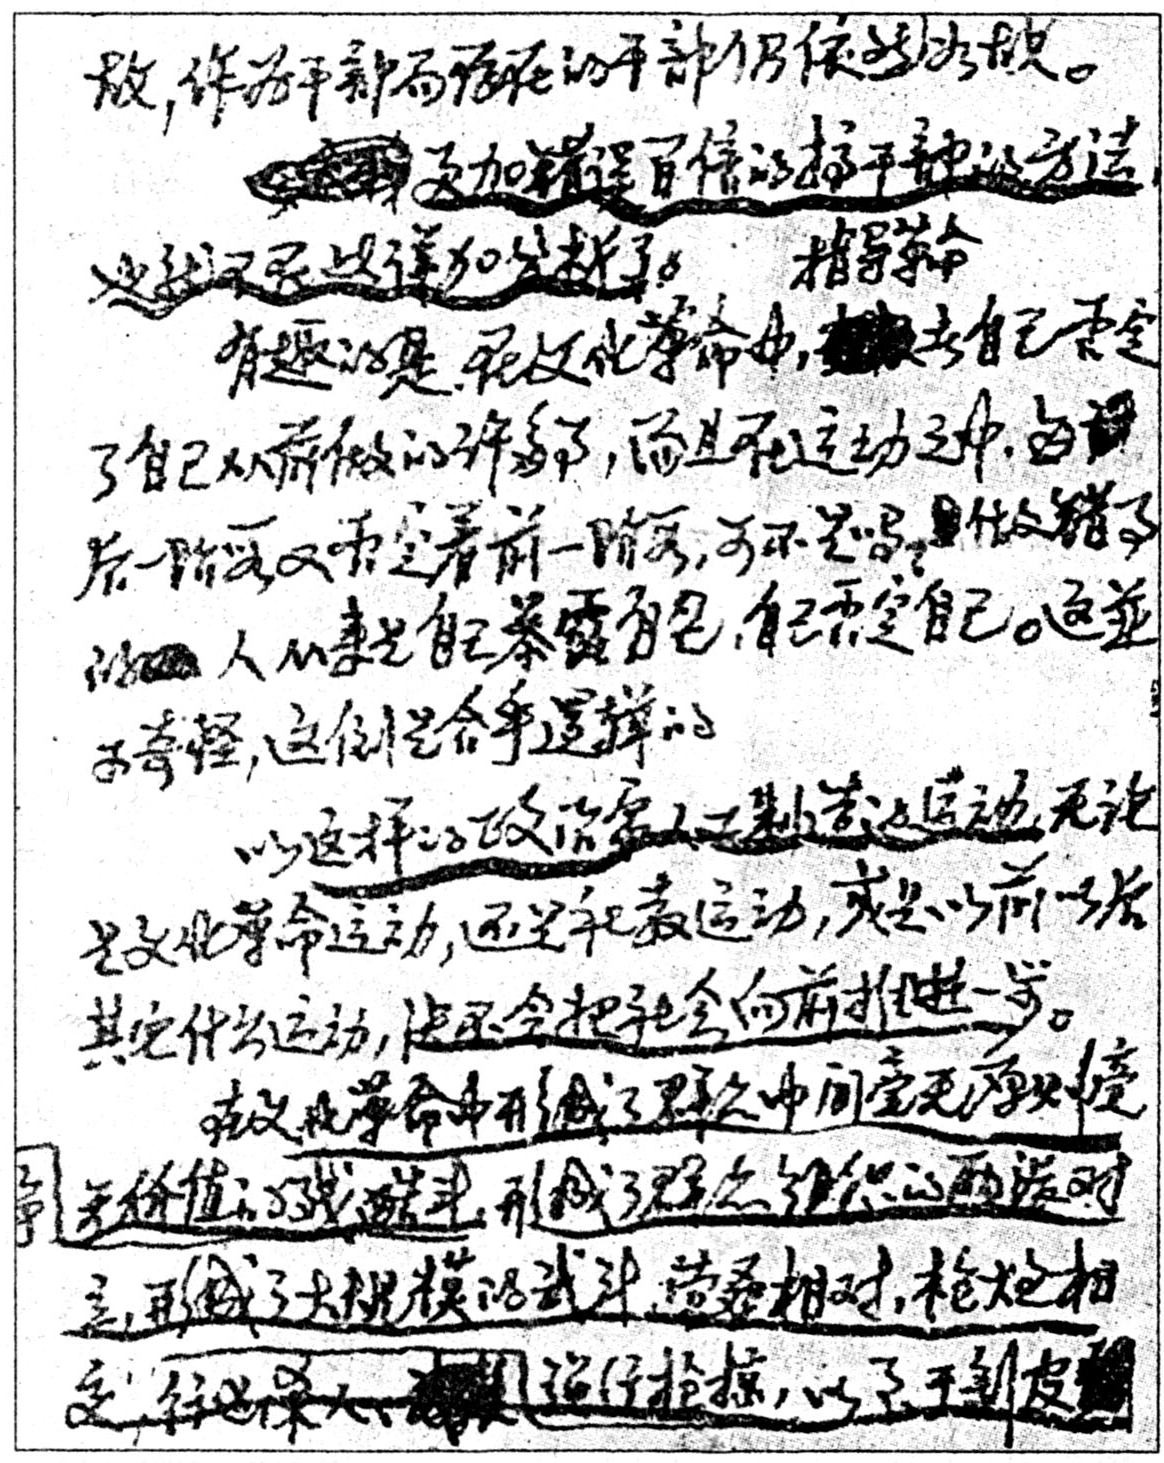 故，作为干部而存在的干部仍依然如故。
更加错误百倍的搞干部的方法，
也就不用这样加分析了。
指导革命
有趣的是，在文化革命中，者自己否定
了自己从前做的许多事，而且在运动之中，每
后一阶段又否定着前一阶段，可不是吗？做错事
的人从来是自己暴露自己，自己否定自己。这并
不奇怪，这倒是合乎逻辑的
以这样的政治家人工制造运动，无论
是文化革命运动，还是社教运动，或是以前以后
其它什么运动，决不会把社会向前推进一步。
在文化革命中形成了群众中间毫无原则、毫
争
无价值的残酷斗，形成了群众组织的两派对
立，形成了大规模的武斗，营垒相对，枪炮相
交，行凶杀人、进行抢掠，以至于剥皮